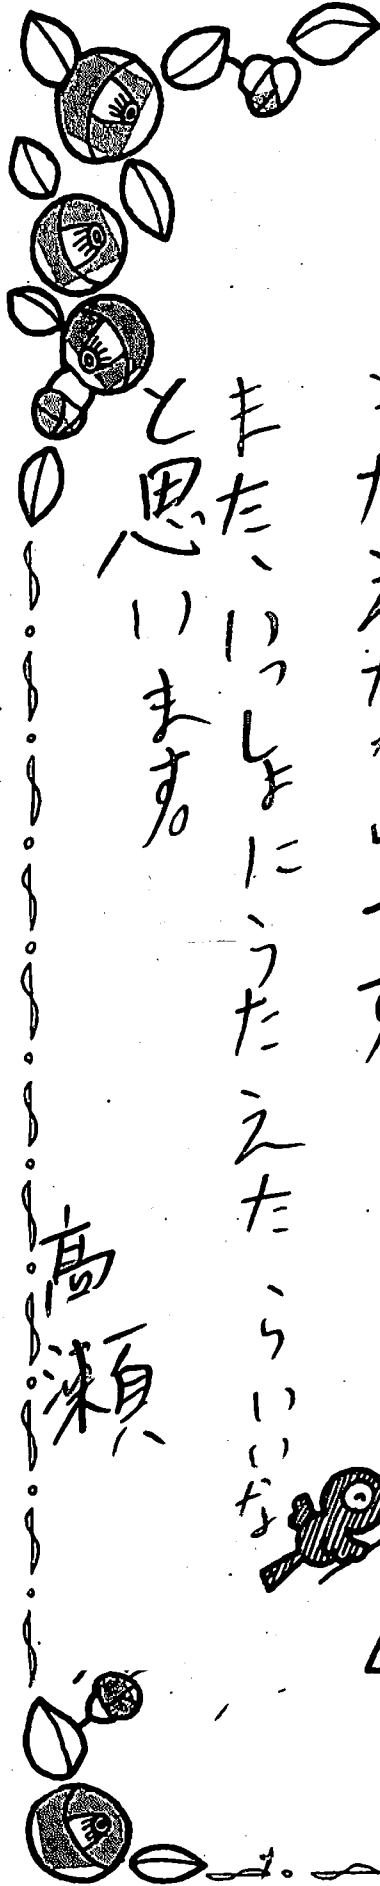 また、いっしょにうたえたらいいな
と思います。
高瀬